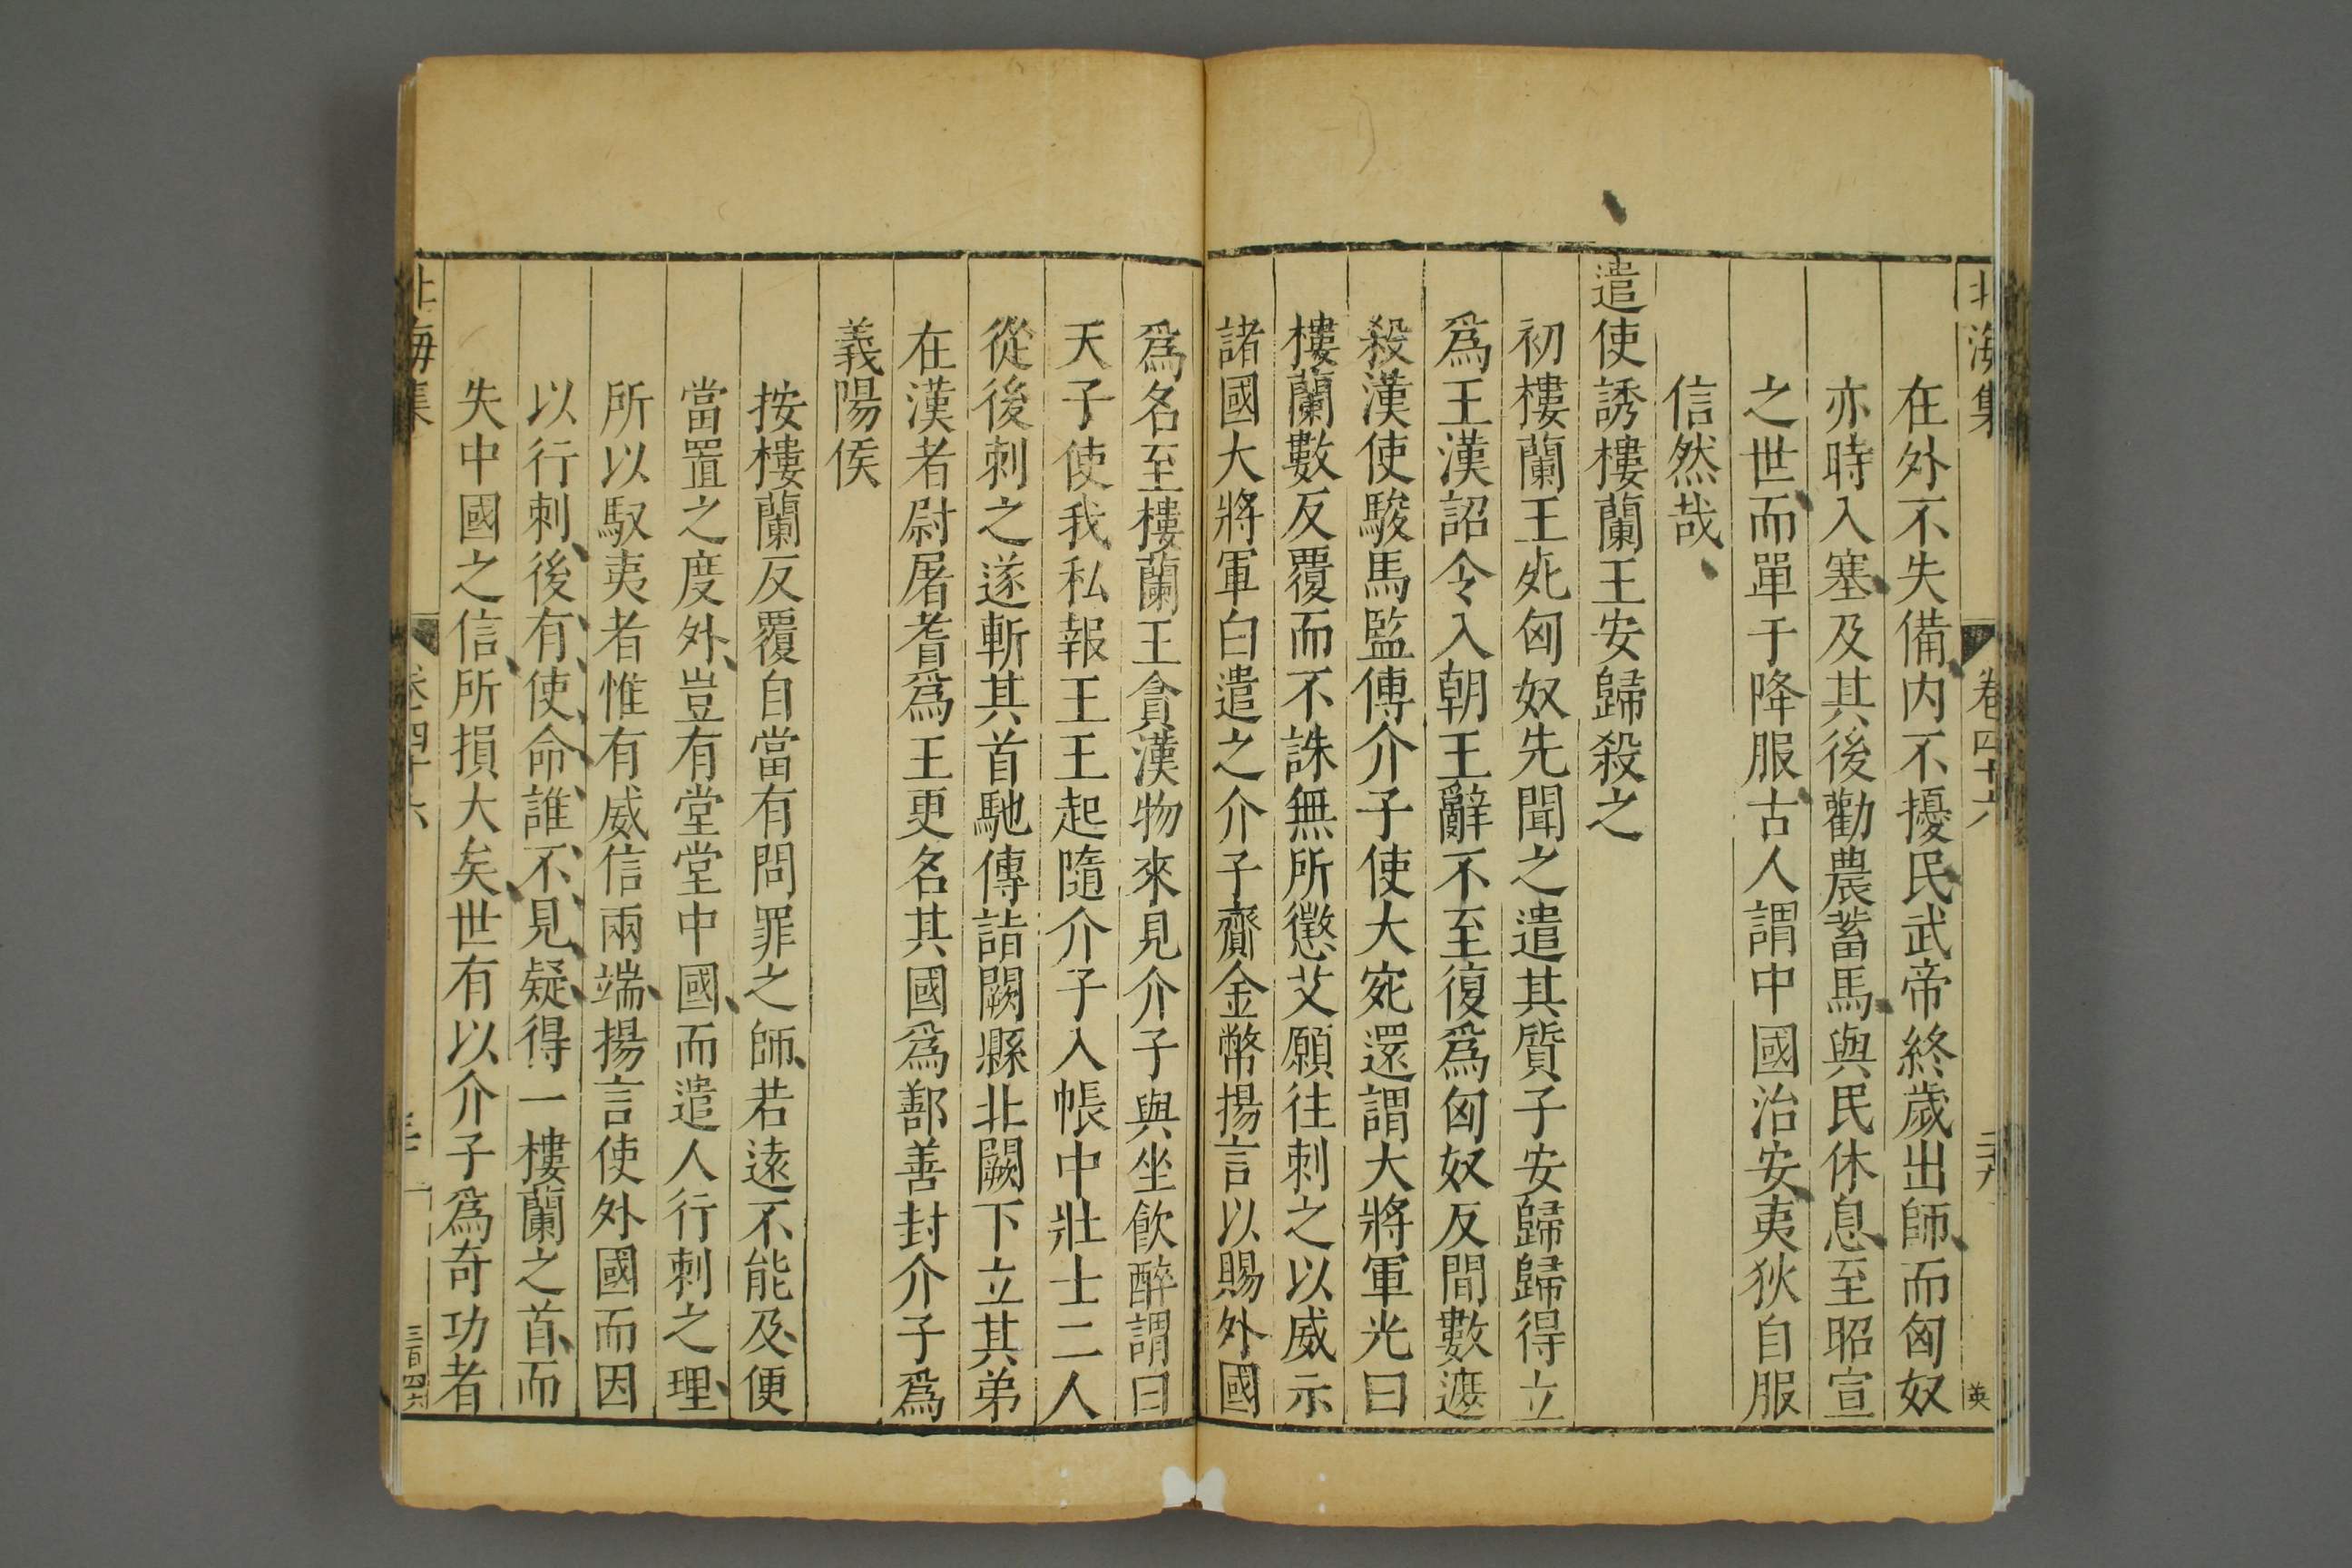 北海集 卷四十六 英
在外不失備内不擾民武帝終歲出師而匈奴
亦時入塞及其後勸農蓄馬與民休息至昭宣
之世而單于降服古人謂中國治安夷狄自服
信然哉
遣使誘樓蘭王安歸殺之
初樓蘭王死匈奴先聞之遣其質子安歸歸得立
爲王漢詔令入朝王辭不至復爲匈奴反間數遮
殺漢使駿馬監傅介子使大宛還謂大將軍光曰
樓蘭數反覆而不誅無所懲艾願往刺之以威示
諸國大將軍白遣之介子齎金幣揚言以賜外國
爲名至樓蘭王貪漢物來見介子與坐飲醉謂曰
天子使我私報王王起隨介子入帳中壯士二人
從後刺之遂斬其首馳傳詣闕縣北闕下立其弟
在漢者尉屠耆爲王更名其國爲鄯善封介子爲
義陽侯
按樓蘭反覆自當有問罪之師若遠不能及便
當置之度外豈有堂堂中國而遣人行刺之理
所以馭夷者惟有威信兩端揚言使外國而因
以行刺後有使命誰不見疑得一樓蘭之首而
失中國之信所損大矣世有以介子爲奇功者
北海集 卷四十六 三百四六